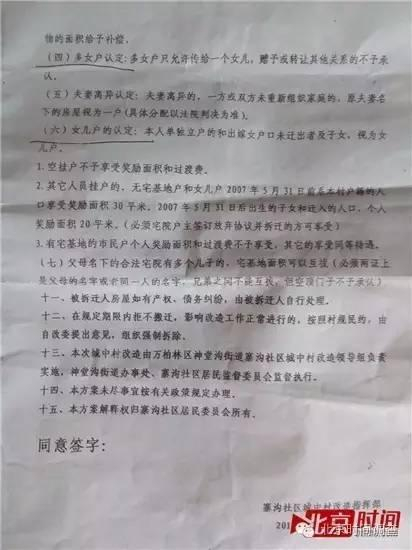 物的面积给予补偿。
（四）多女户认定：多女户只允许传给一个女儿，赠予或转让其他关系的不予承
认。
（五）夫妻离异认定：夫妻离异的，一方或双方未重新组织家庭的，原夫妻名
下的房屋视为一户（具体分配以法院判决为准）。
（六）女儿户的认定：本人单独立户的和出嫁女户口未迁出者及子女，视为女
儿户。
1.空挂户不予享受奖励面积和过渡费。
2.其它人员挂户的，无宅基地户和女儿户2007年5月31日前系本村户籍的人
口享受奖励面积30平米。2007年5月31日后出生的子女和迁入的人口，个人
奖励面积20平米。（必须宅院户主签订放弃协议并拆迁的方可享受）
3.有宅基地的市民户个人奖励面积和过渡费不予享受，其它的享受同等待遇。
（七）父母名下的合法宅院有多个儿子的，宅基地面积可以互找（必须两证上
是父母的名字或者同一人的名字，兄弟之间不能互找，但空顶门子不予承认）
十一、被拆迁人房屋如有产权、债务纠纷，由被拆迁人自行处理。
十二、在规定期限内拒不搬迁，影响改造工作正常进行的，按照村规民约，由
自改委提出意见，组织强制拆除。
十三、本次城中村改造由万柏林区神堂沟街道寨沟社区城中村改造领导组负责
实施，神堂沟街道办事处、寨沟社区居民监督委员会监督执行。
十四、本方案未尽事宜按有关政策规定办理。
十五、本方案解释权归寨沟社区居民委员会所有。
同意签字：
寨沟社区城中村改造指挥部
201
北京时间